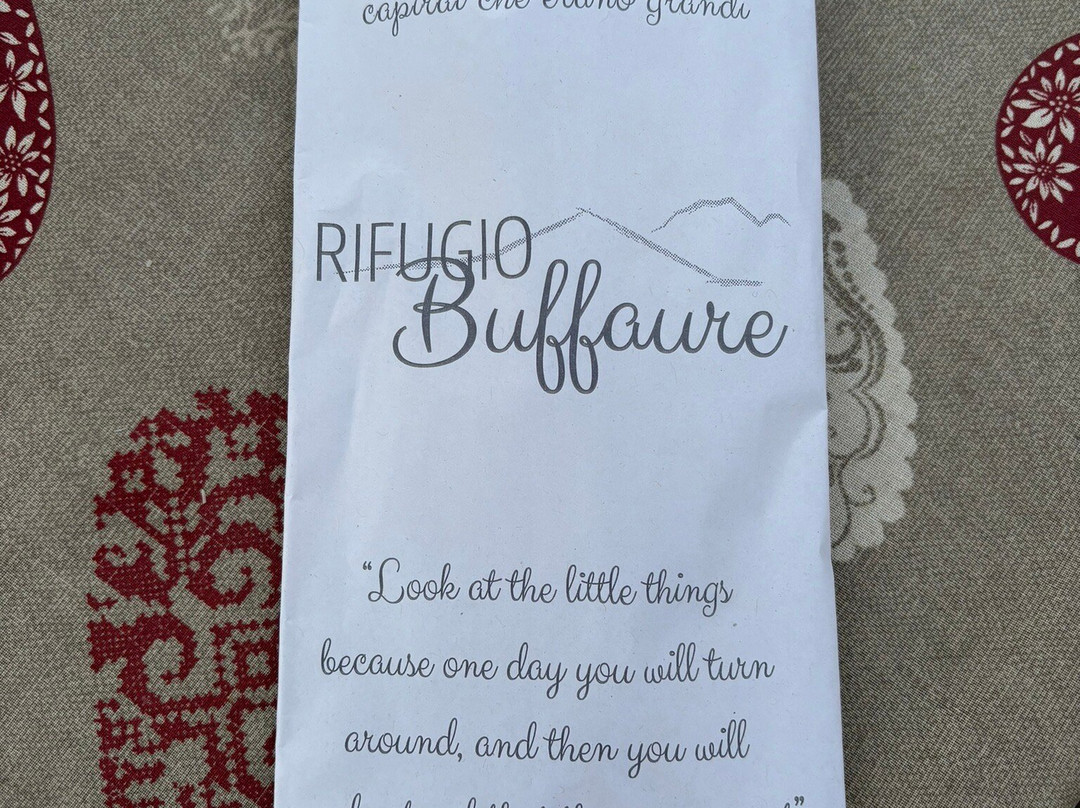 capirai che erano grandi
RIFUGIO
Buffaure
“Look at the little things
because one day you will turn
around, and then you will